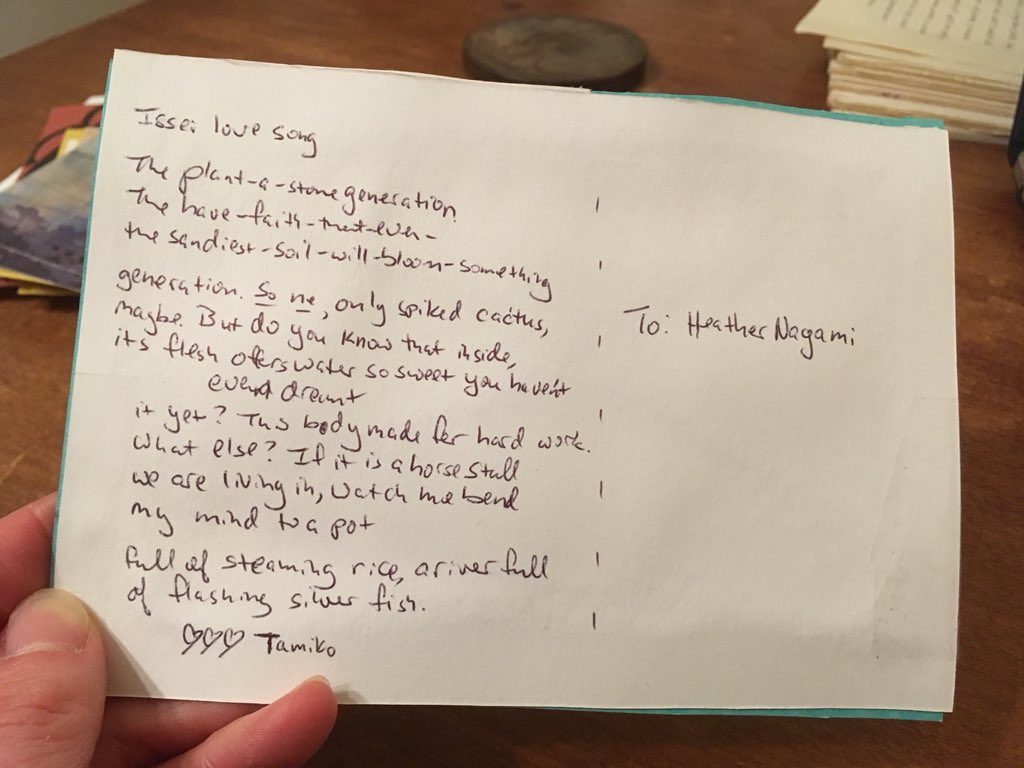 Issei love song
The plant-a-stone generation.
The have-faith-that-even-
the sandiest-soil-will-bloom-something
generation. So ne, only spiked cactus,
maybe. But do you know that inside,
its flesh offers water so sweet you haven't
even dreamt
it yet? This body made for hard work.
What else? If it is a horse stall
we are living in, watch me bend
my mind to a pot
full of steaming rice, a river full
of flashing silver fish.
♡♡♡ Tamiko
To: Heather Nagami